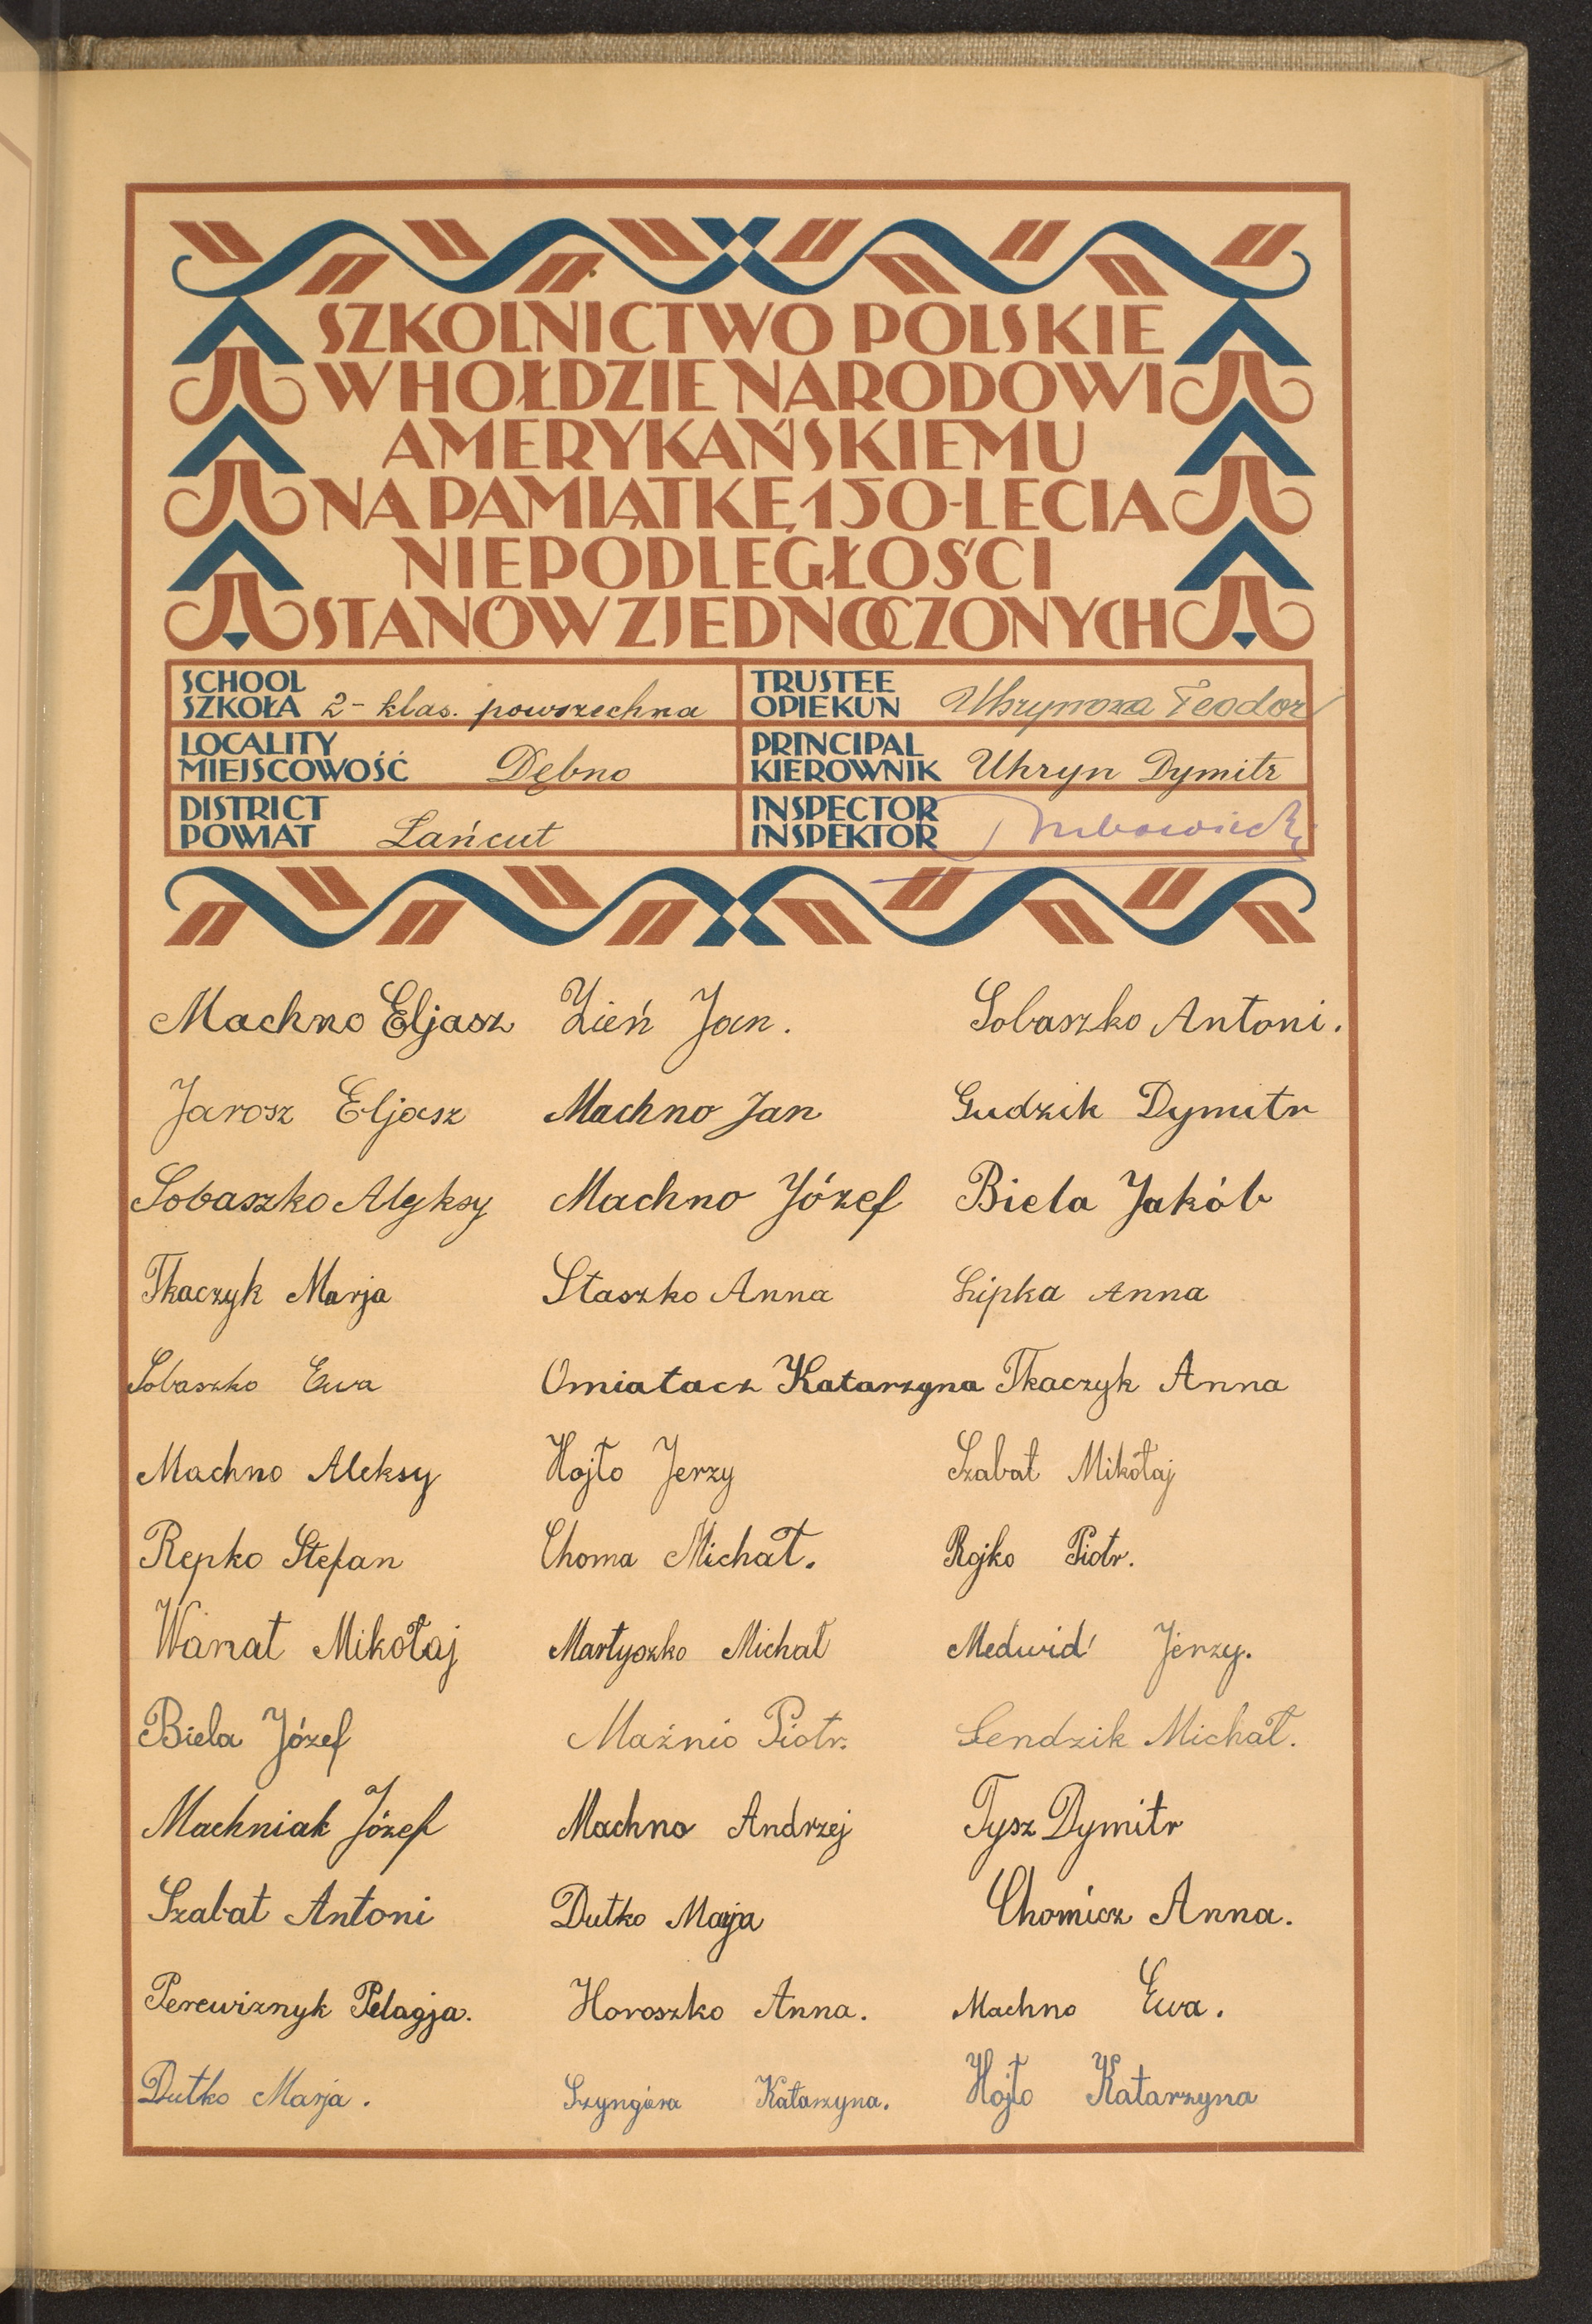 SZKOLNICTWO POLSKIE
W HOŁDZIE NARODOWI
AMERYKAŃSKIEMU
NA PAMIĄTKĘ 150-LECIA
NIEPODLEGŁOŚCI
STANÓW ZJEDNOCZONYCH
SCHOOL
SZKOŁA 2-klas. powszechna
TRUSTEE
OPIEKUN Teodor
LOCALITY
MIEJSCOWOŚĆ Dębno
PRINCIPAL
KIEROWNIK Uhryn Dymitr
DISTRICT
POWIAT Łańcut
INSPECTOR
INSPEKTOR
Machno Eljasz Zień Jan. Sobaszko Antoni.
Jarosz Eljasz Machno Jan Gudzik Dymitr
Sobaszko Alyksy Machno Józef Biela Jakób
Tkaczyk Marja Staszko Anna Lipka Anna
Sobaszko Ewa Omiatacz Katarzyna Tkaczyk Anna
Machno Aleksy Hojło Jerzy Szabat Mikołaj
Repko Stefan Choma Michał. Rojko Piotr.
Wanat Mikołaj Martyszko Michał Medwid' Jerzy.
Biela Józef Maźnio Piotr. Gendzik Michał.
Machniak Józef Machno Andrzej Tysz Dymitr
Szabat Antoni Dutko Marja Chomicz Anna.
Perewiznyk Pelagja. Horoszko Anna. Machno Ewa.
Dutko Marja. Szyngiera Katarzyna. Hojło Katarzyna